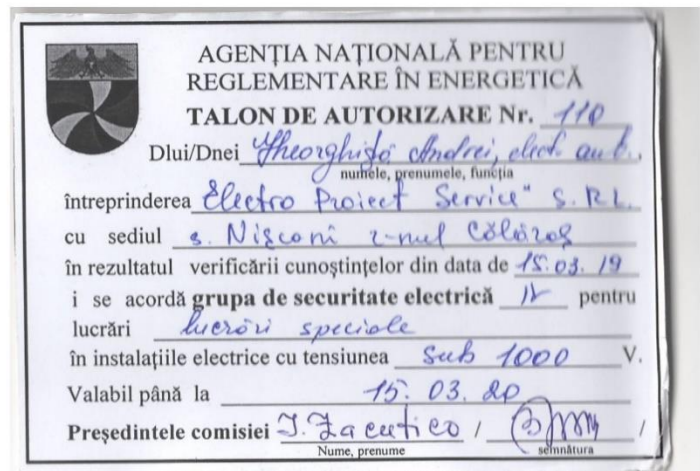 AGENȚIA NAȚIONALĂ PENTRU
REGLEMENTARE ÎN ENERGETICĂ
TALON DE AUTORIZARE Nr. 110
Dlui/Dnei Gheorghiță Andrei, elect. aut.
numele, prenumele, funcția
întreprinderea "Electro Proiect Service" S.R.L.
cu sediul s. Nișcani r-nul Călăraș
în rezultatul verificării cunoștințelor din data de 15.03.19
i se acordă grupa de securitate electrică IV pentru
lucrări lucrări speciale
în instalațiile electrice cu tensiunea sub 1000 V.
Valabil până la 15.03.20
Președintele comisiei I. Zacutico / /
Nume, prenume semnătura